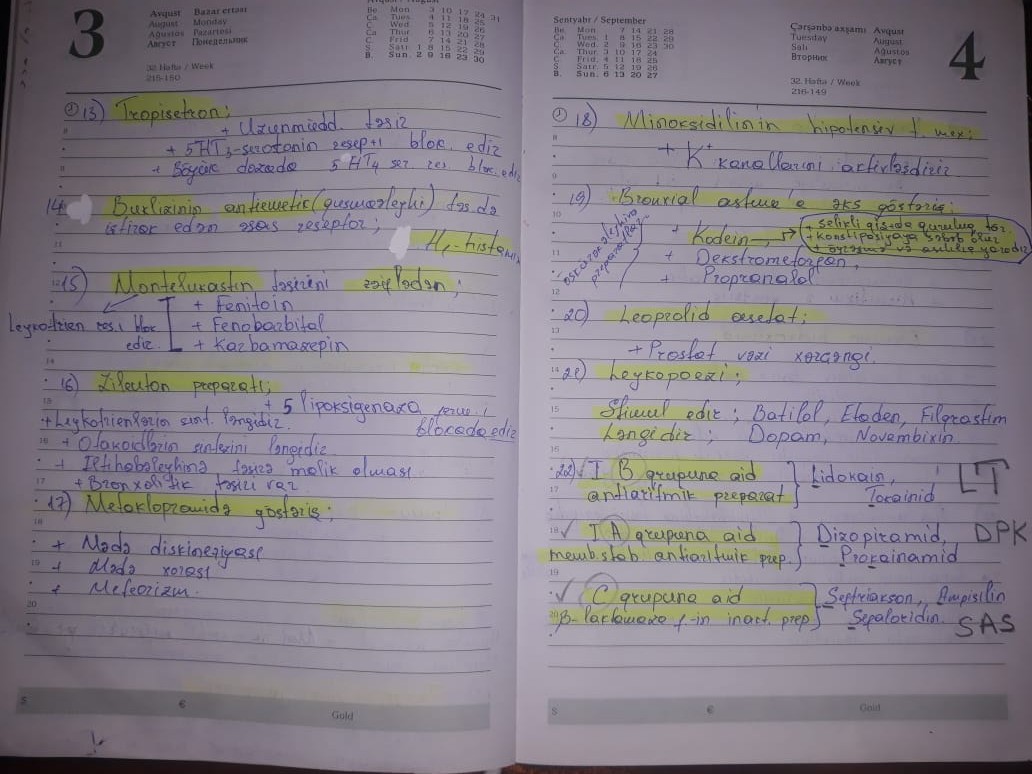 3
Avqust Bazar ertəsi
August Monday
Ağustos Pazartesi
Август Понедельник
32. Həftə / Week
215-150
Be. Mon. 3 10 17 24 31
Ca. Tues. 4 11 18 25
C. Wed. 5 12 19 26
Ca. Thur. 6 13 20 27
C. Frid. 7 14 21 28
S. Satr. 1 8 15 22 29
B. Sun. 2 9 16 23 30
13) Tropisetron;
+ Uzunmüdd. təsir
+ 5HT3-serotonin resept-ı blok. edir
+ Böyük dozada 5HT4 ser. res. blok. edir
14 Buklizinin antiemetik (qusmaəleyhi) təs.də
iştirak edən əsas reseptor;
H1-histamin
15) Montelukastın təsirini zəiflədən;
+ Fenitoin
Leykotrien res.ı blok + Fenobarbital
edir. + Karbamazepin
16) Zileuton preparatı;
+ 5 lipoksigenaza ferm.i
blokada edir
+ Leykotrienlərin sint. ləngidir.
+ Otakoidlərin sintezini ləngidir
+ İltihabəleyhinə təsirə malik olması
+ Bronxolitik təsiri var
17) Metoklopramidə göstəriş;
+ Mədə diskineziyası
+ Mədə xorası
+ Meteorizm.
S € Gold
Sentyabr / September
Be. Mon. 7 14 21 28
Ca. Tues. 1 8 15 22 29
C. Wed. 2 9 16 23 30
Ca. Thur. 3 10 17 24
C. Frid. 4 11 18 25
S. Satr. 5 12 19 26
B. Sun. 6 13 20 27
Çərşənbə axşamı Avqust
Tuesday August
Salı Ağustos
Вторник Август
32. Həftə / Week
216-149
4
18) Minoksidilinin hipotenziv t. mex;
+ K+ kanallarını aktivləşdirir
19) Bronxial astma'a əks göstəriş;
+ Kodein → + selikli qişada quruluq tör.
+ konstipasiyaya səbəb olur
+ öyrəşmə və asılılıq yaradır
+ Dekstrometorfan,
+ Propranalol
öskürəkəleyhinə preparatlar
20) Leoprolid asetat;
+ Prostat vəzi xərçəngi.
21) Leykopoezi;
Stimul edir; Batilol, Etaden, Filgrastim
Ləngidir; Dopam, Novembixin
22) ✓ I-B qrupuna aid } Lidokain, LT
antiaritmik preparat } Tokainid
✓ I A qrupuna aid } Dizopiramid, DPK
membstab antiaritmik prep. } Prokainamid
✓ C qrupuna aid } Seftriakson, Ampisilin
β-laktamaza f-in inact. prep } Sefaloridin. SAS
S € Gold